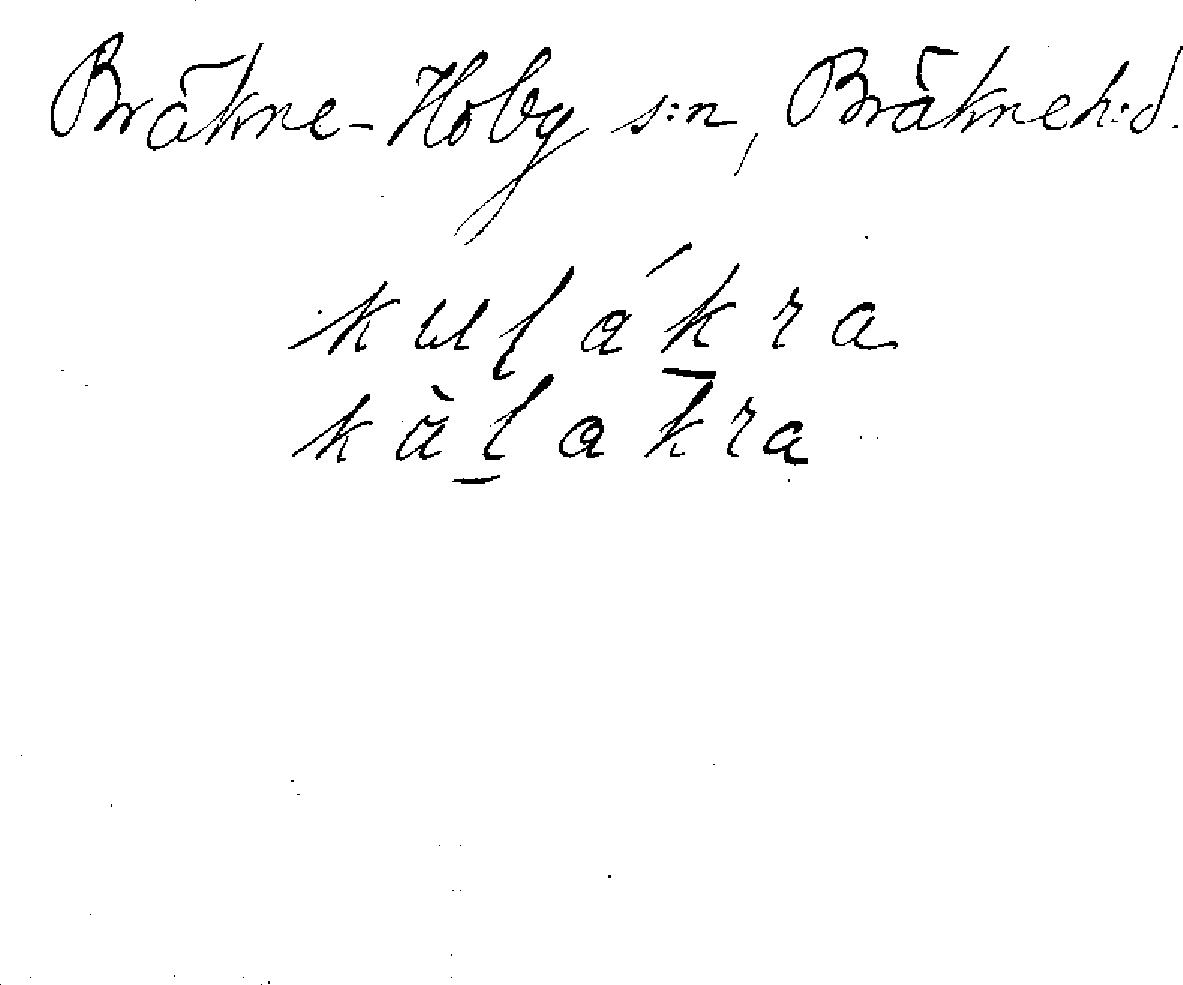 Bräkne-Hoby s:n, Bräkneh:d.
kulákra
kàlakra